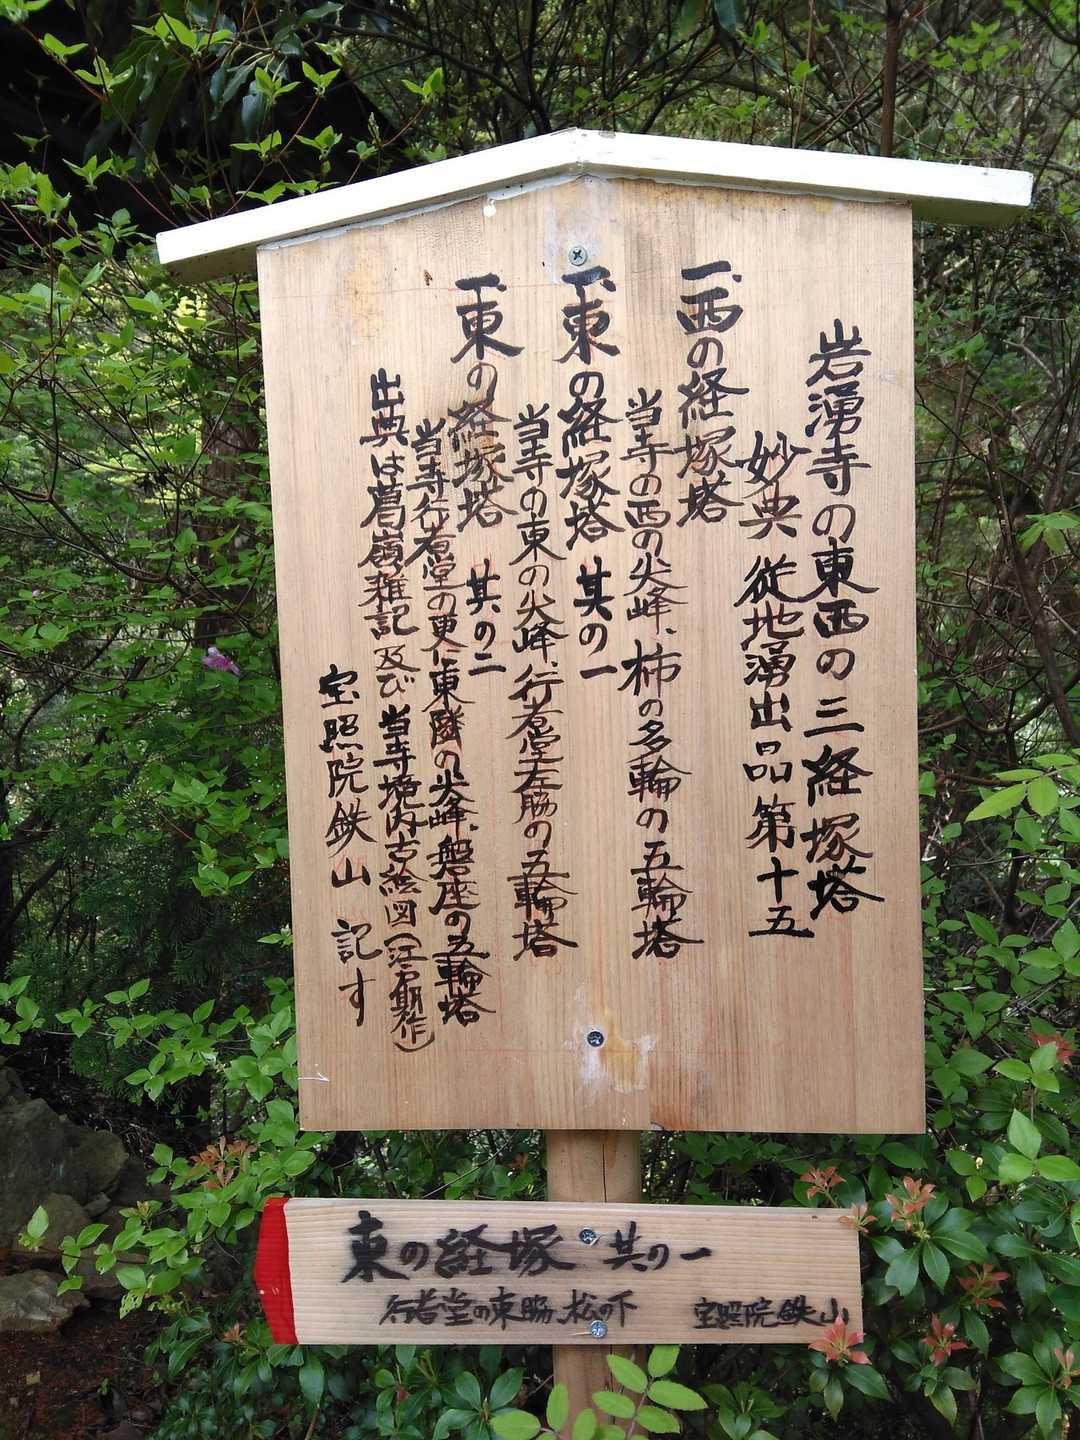 岩湧寺の東西の三経塚塔
妙典 従地湧出品第十五
一、西の経塚塔
当寺の西の尖峰、柿の多輪の五輪塔
一、東の経塚塔 其の一
当寺の東の尖峰、行者堂左脇の五輪塔
一、東の経塚塔 其の二
当寺行者堂の更に東隣の尖峰、磐座の五輪塔
出典は葛嶺雑記及び当寺境内古絵図(江戸期作)
宝照院鉄山 記す
東の経塚 其の一
行者堂の東脇、松の下 宝照院鉄山